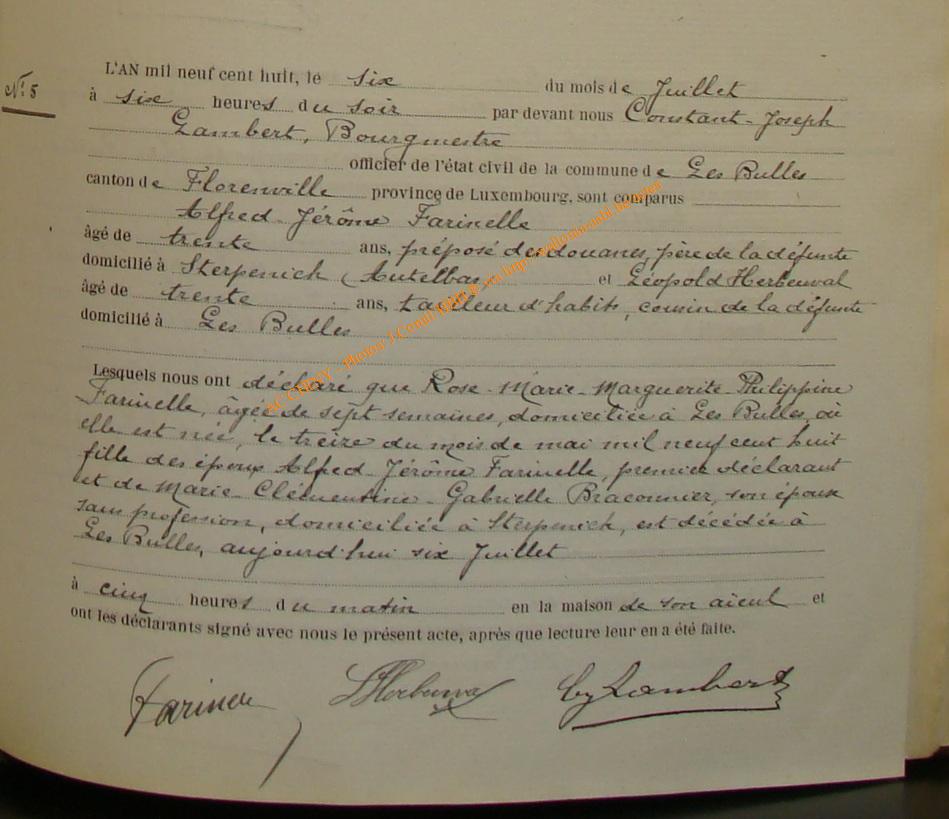 N° 5
L'AN mil neuf cent huit, le six du mois de Juillet
à six heures du soir par devant nous Constant-Joseph
Lambert, Bourgmestre
officier de l'état civil de la commune de Les Bulles
canton de Florenville province de Luxembourg, sont comparus
Alfred-Jérôme Farinelle
âgé de trente ans, préposé des douanes, père de la défunte
domicilié à Sterpenich (Autelbas et Léopold Herbeuval
âgé de trente ans, tailleur d'habits, cousin de la défunte
domicilié à Les Bulles
Lesquels nous ont déclaré que Rose-Marie-Marguerite-Philippine
Farinelle, âgée de sept semaines, domiciliée à Les Bulles, où
elle est née, le treize du mois de mai mil neuf cent huit
fille des époux Alfred-Jérôme Farinelle, premier déclarant
et de Marie-Clémentine-Gabrielle Braconnier, son épouse
sans profession, domiciliée à Sterpenich, est décédée à
Les Bulles, aujourd'hui six Juillet
à cinq heures du matin en la maison de son aïeul et
ont les déclarants signé avec nous le présent acte, après que lecture leur en a été faite.
Farinelle LHerbeuval CJLambert